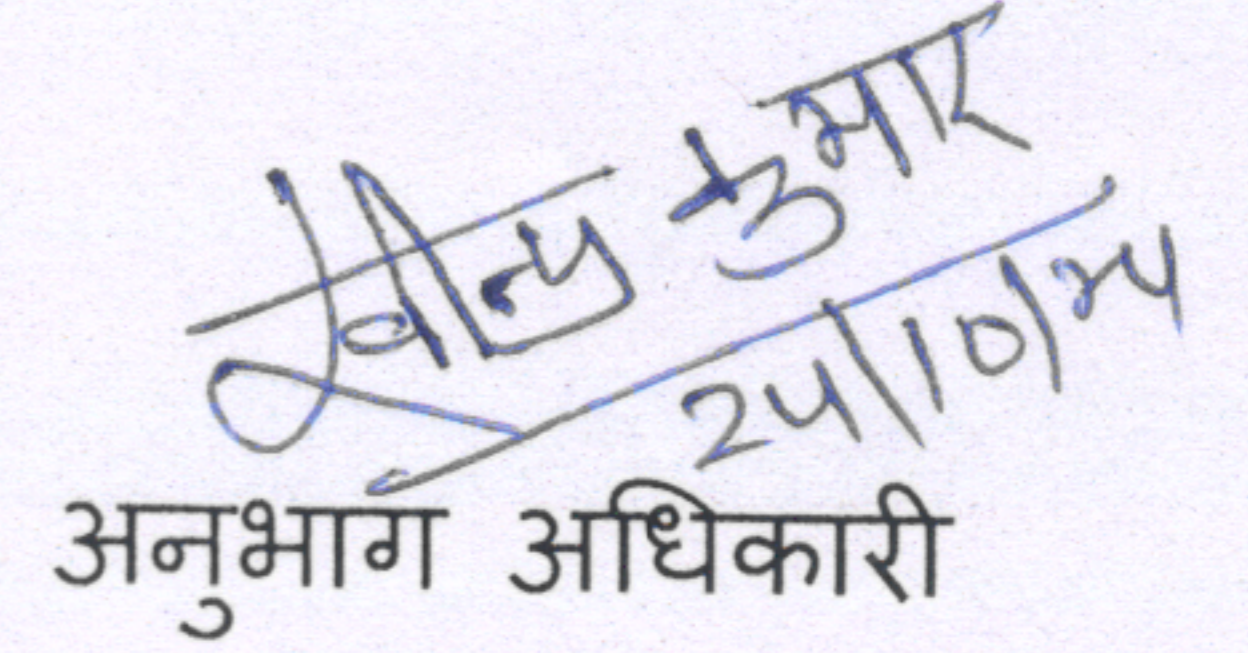 कुमार
24/10/24
अनुभाग अधिकारी